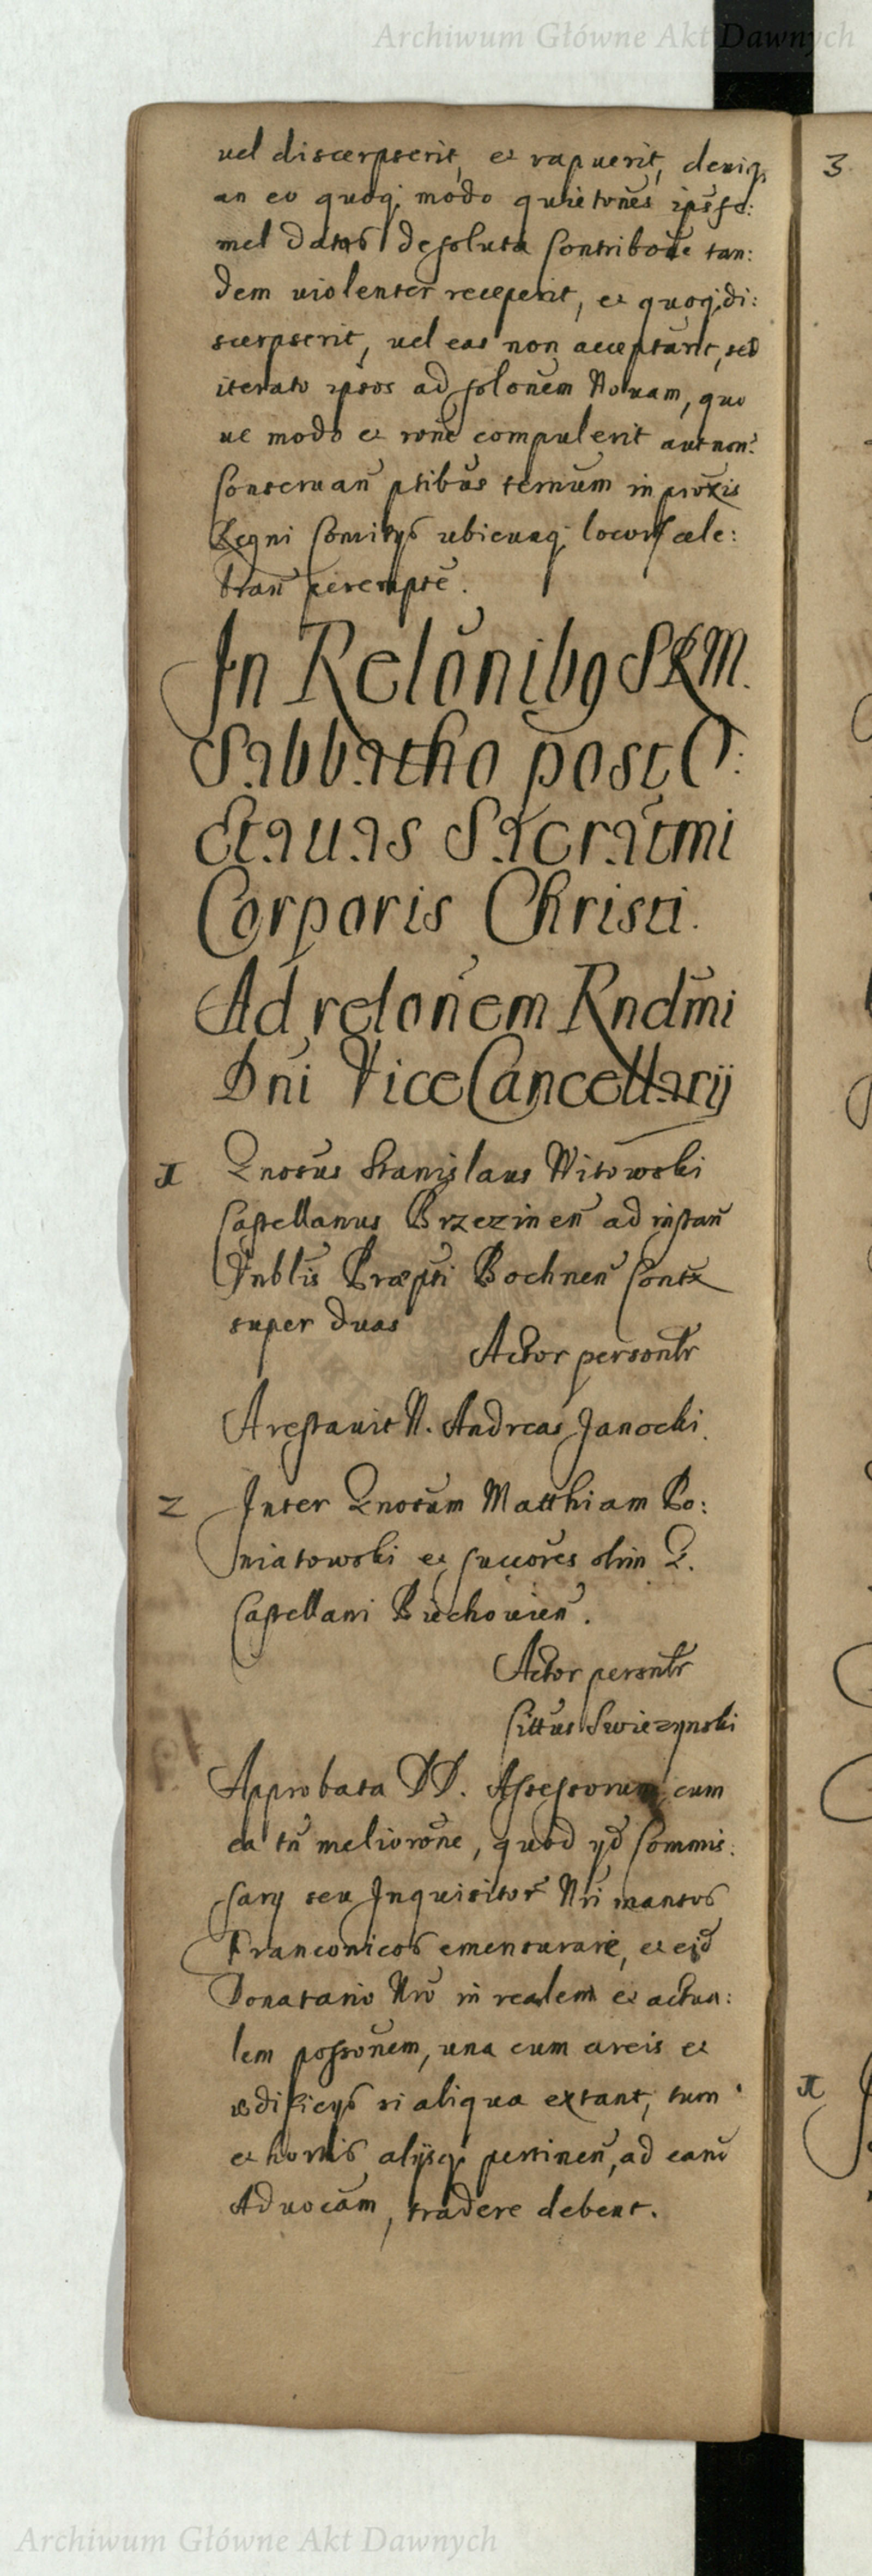 Archiwum Główne Akt Dawnych
vel discerpserit, et rapuerit, deniq;
an eo quoq; modo quietoñes ipsis se:
mel datas de soluta Contriboñe tan:
dem violenter receperit, et quoq; di:
scerpserit, vel eas non acceptarit, sed
iterato ipsos ad soloñem Novam, quo
ve modo et roñe compulerit aut non?
Conservañ ptibus termum in proxis
Regni Comitijs ubicunq; locor cele:
brañ perempte.
In Reloñibg SRM.
Sabbatho post O:
ctavas Sacratmi
Corporis Christi.
Ad reloñem Rndmi
Dñi ViceCancellarij
1 Gnosus Stanislaus Witowski
Castellanus Brzezineñ ad instañ
Inblis Præpti Bochneñ Contx
super duas
Actor personlr
Arestavit N. Andreas Janocki.
2 Inter Gnosum Matthiam Po:
niatowski et succores olim G.
Castellani Biechovieñ.
Actor personlr
Cittus Swiezynski
Approbata DD. Assessorum, cum
ea tñ melioroñe, quod yd Commis:
sarij seu Inquisitor Nri mansos
Franconicos emensurare, et eid
Donatario Nro in realem et actua:
lem possoñem, una cum areis et
ædificijs si aliqua extant, tum
et hortis alijsq; pertineñ, ad eand
Advocam, tradere debent.
3
1
Archiwum Główne Akt Dawnych